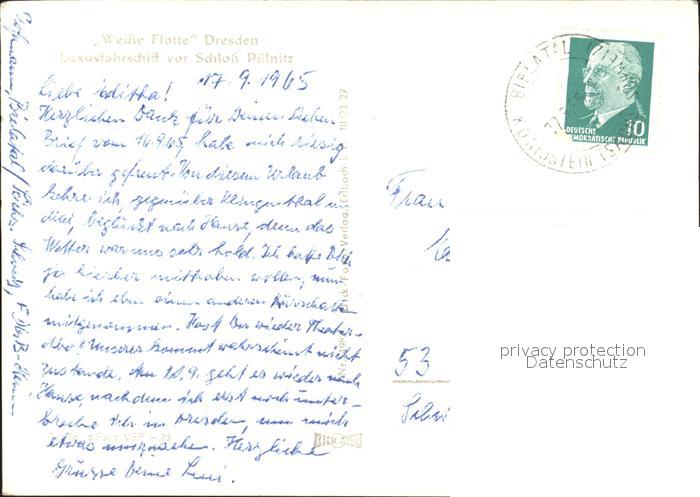 „Weiße Flotte" Dresden
Luxusfahrschiff vor Schloß Pillnitz
17. 9. 1965
Liebe Editha!
Herzlichen Dank für Deinen lieben
Brief vom 14.9.65, habe mich riesig
darüber gefreut. Von diesem Urlaub
kehre ich, gegenüber Klingenthal im
Mai, beglückt nach Hause, denn das
Wetter war uns sehr hold. Ich hatte Dich
ja hierher mithaben wollen, nun
habe ich eben einen anderen
mitgenommen. Hast Du wieder Theater-
abo? Unserer kommt wahrscheinl. nicht
zustande. Am 18.9. geht es wieder nach
Hause, nachdem ich erst noch unter-
breche ich in Dresden, um mich
etwas umzusehen. Herzliche
Grüsse Deine
Bielatal / Sächs. Schweiz,
III/23/29
BIELATAL
KÖNIGSTEIN
10
DEUTSCHE
DEMOKRATISCHE REPUBLIK
Frau
53
privacy protection
Datenschutz